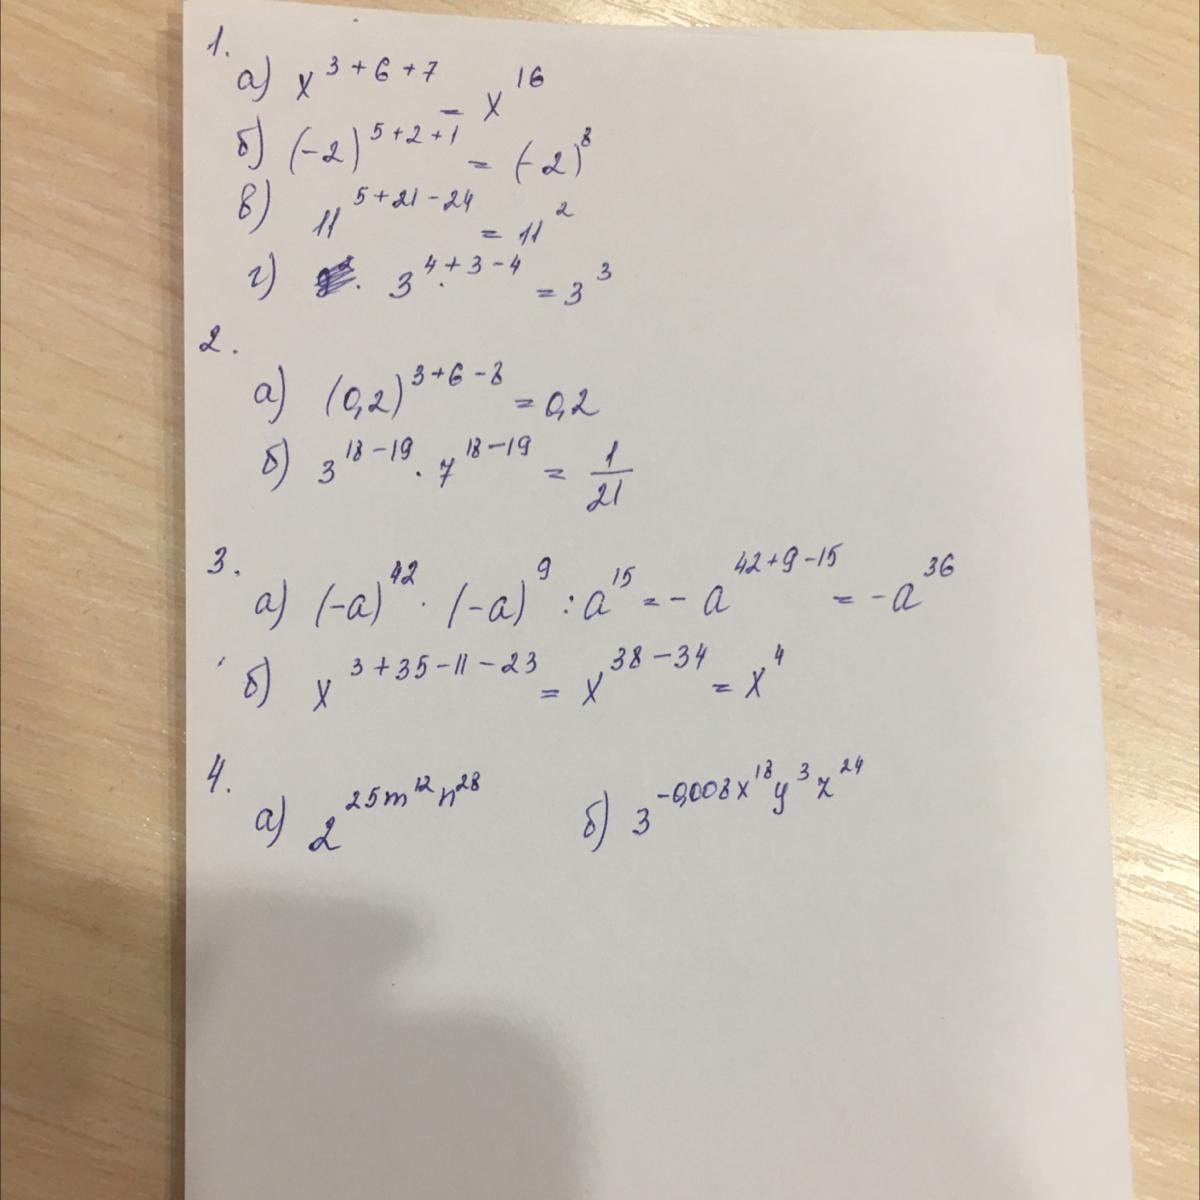 1.
а) x^{3+6+7} = x^{16}
б) (-2)^{5+2+1} = (-2)^8
в) 11^{5+21-24} = 11^2
г) 3^{4+3-4} = 3^3
2.
а) (0,2)^{3+6-8} = 0,2
б) 3^{18-19} · 7^{18-19} = 1/21
3.
а) (-a)^{42} · (-a)^9 : a^{15} = -a^{42+9-15} = -a^{36}
б) x^{3+35-11-23} = x^{38-34} = x^4
4.
а) 2^{25m^{12}n^{28}} б) 3^{-0,008x^{18}y^3z^{24}}